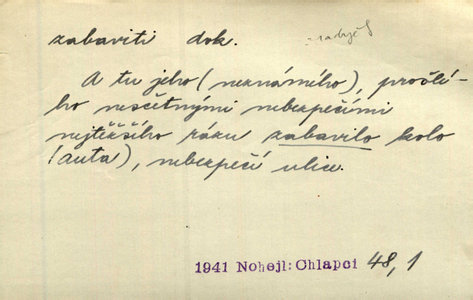 zabaviti dok.
A tu jeho (neznámého), prošlé-
ho nesčetnými nebezpečími
nejtěžšího rázu zabavilo kolo
(auta), nebezpečí ulice.
1941 Nohejl: Chlapci 48,1